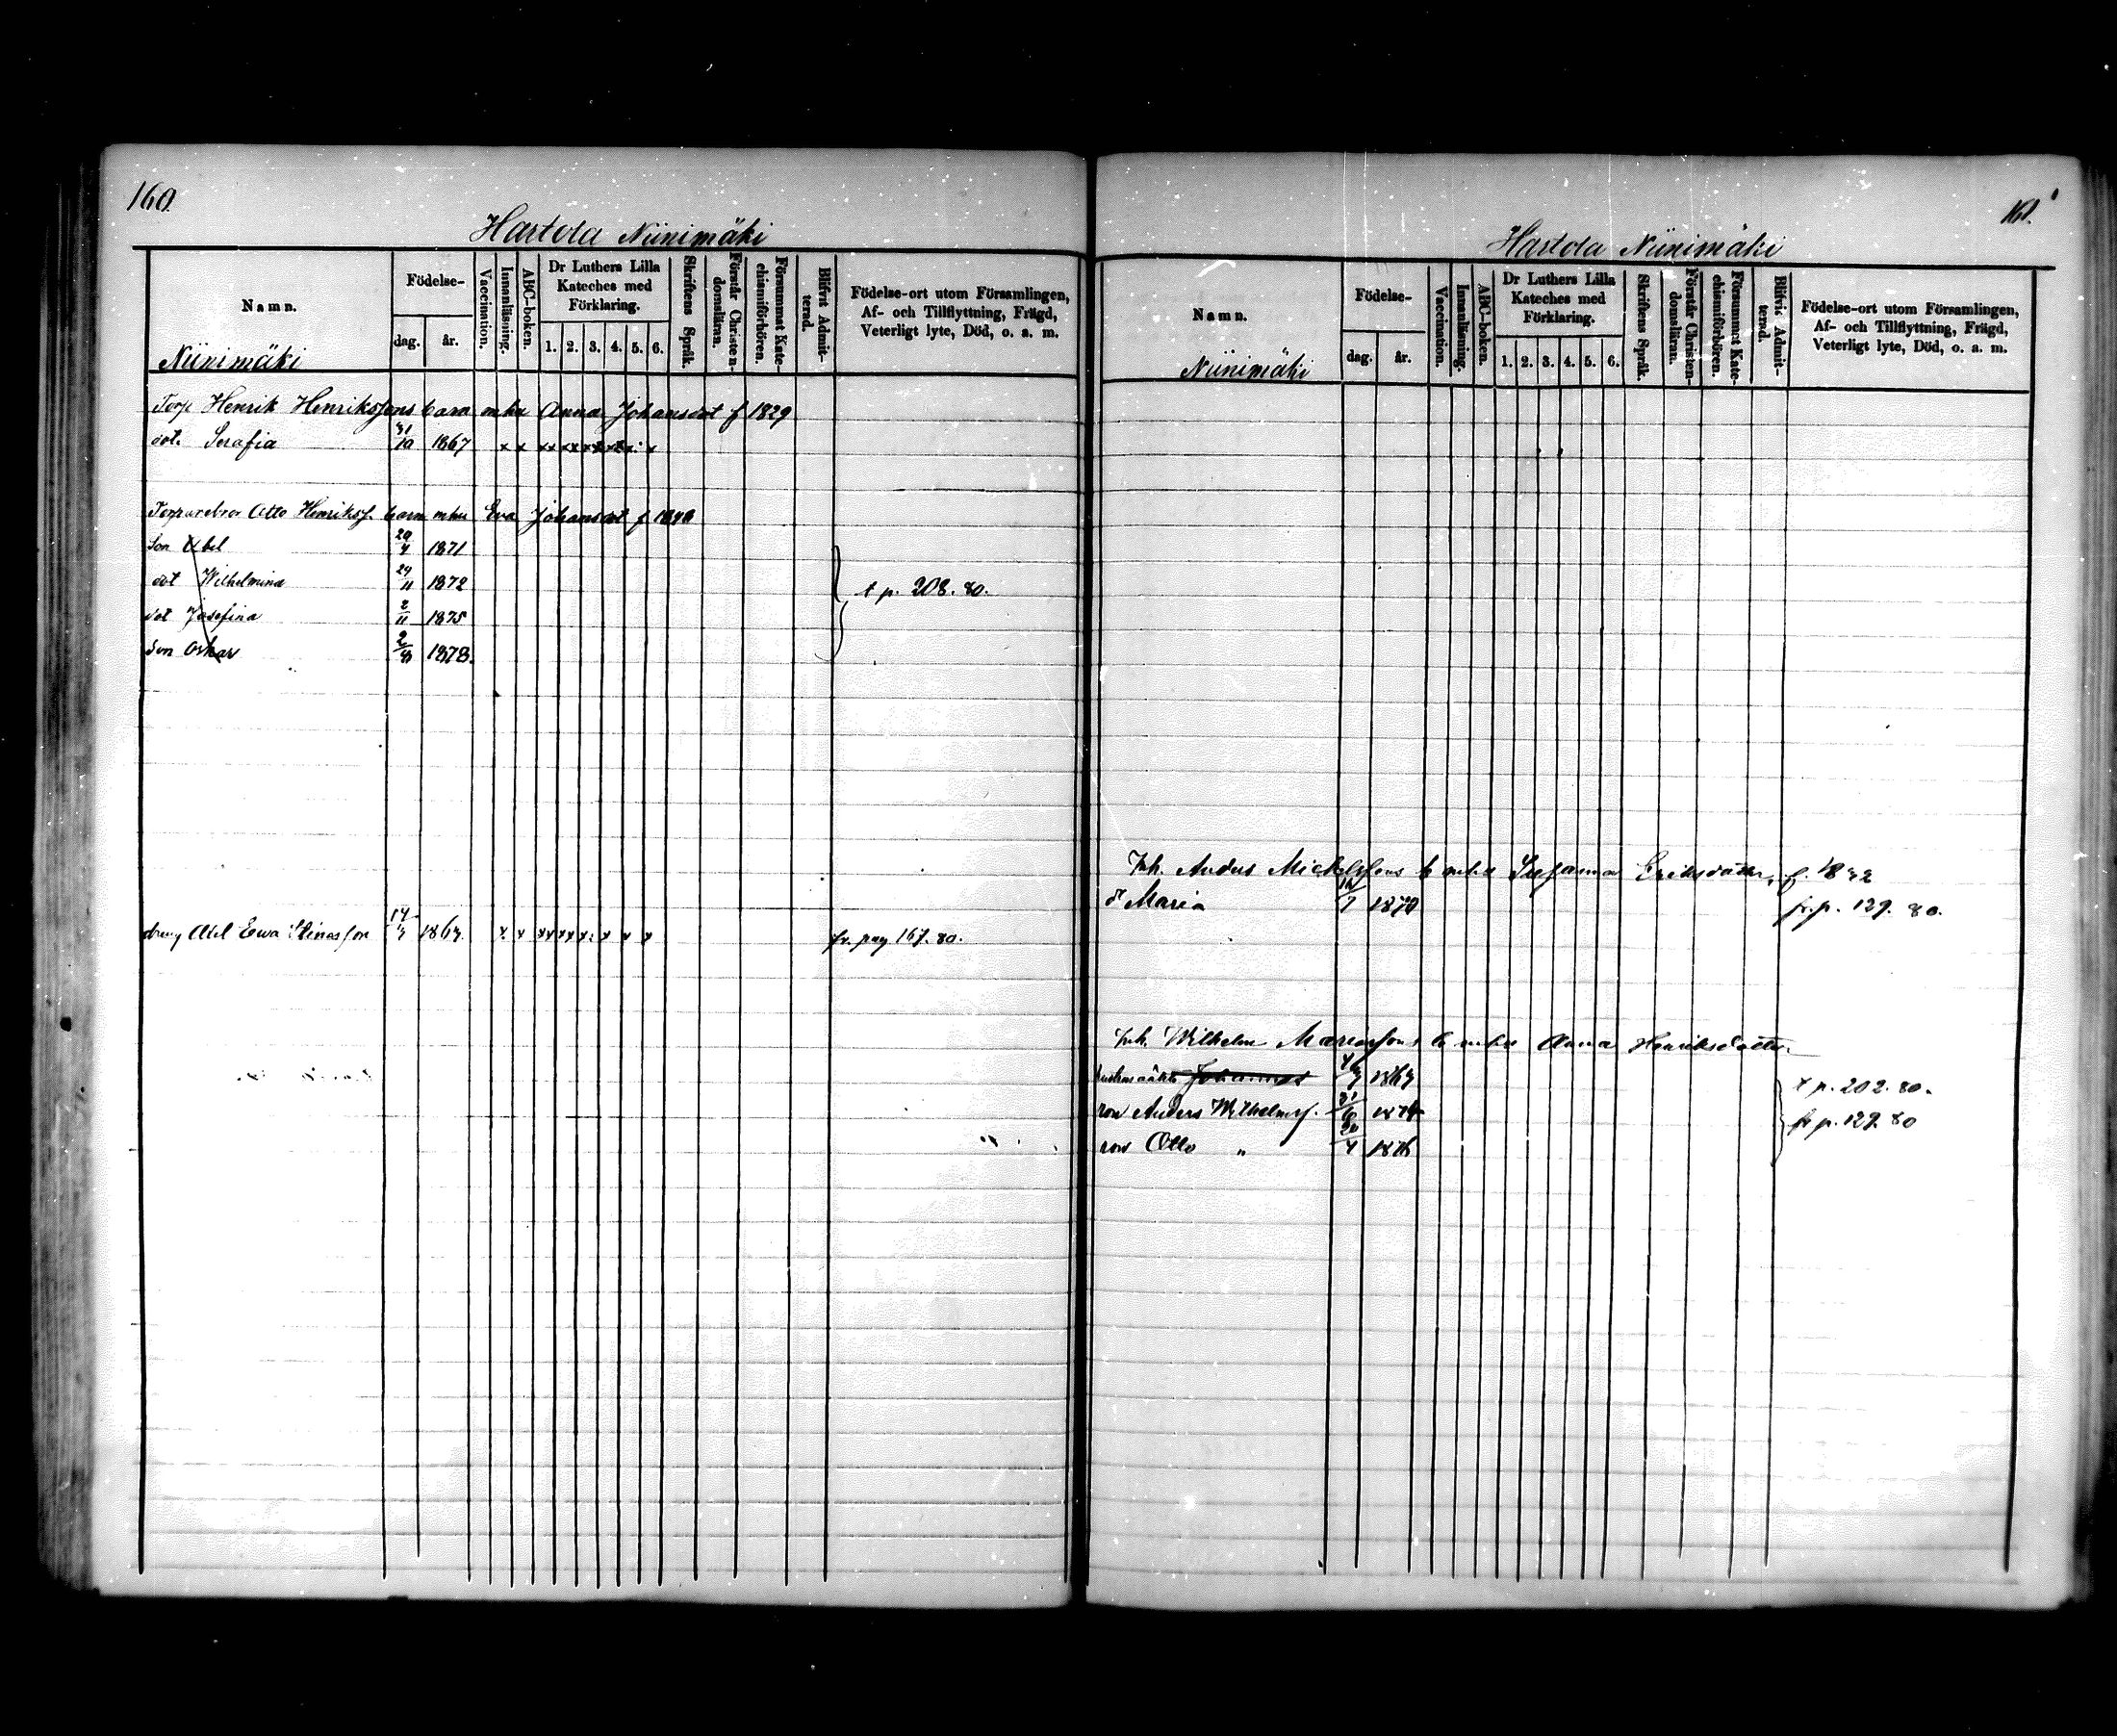 160.
Hartola Niinimäki
Namn.
Födelse-
dag.
år.
Vaccination.
Innanläsning.
ABC-boken.
Dr Luthers Lilla Kateches med Förklaring.
1. 2. 3. 4. 5. 6.
Skriftens Språk.
Förstår Christendomsläran.
Försummat Katechismiförhören.
Blifvit Admitterad.
Födelse-ort utom Församlingen,
Af- och Tillflyttning, Frägd,
Veterligt lyte, Död, o. a. m.
Niinimäki
Torp Henrik Henrikssons barn m hu Anna Johansdot f 1829
dot. Serafia 31/10 1867 x x xx xx xx x x x
Torparebror Otto Henrikss. barn m hu Eva Johansdot f 1848
Son Abel 20/4 1871
dot Wilhelmina 24/11 1872 t p. 208. 80.
dot Josefina 2/11 1875
Son Oskar 2/8 1878.
dreng Abel Ewa Stinasson 14/3 1863. x x xx xx x x x x fr. pag 167. 80.
161.
Hartola Niinimäki
Namn.
Födelse-
dag.
år.
Vaccination.
Innanläsning.
ABC-boken.
Dr Luthers Lilla Kateches med Förklaring.
1. 2. 3. 4. 5. 6.
Skriftens Språk.
Förstår Christendomsläran.
Försummat Katechismiförhören.
Blifvit Admitterad.
Födelse-ort utom Församlingen,
Af- och Tillflyttning, Frägd,
Veterligt lyte, Död, o. a. m.
Niinimäki
Inh. Anders Mickelssons b m hu Susanna Eriksdotter, f. 1832
dr Maria 1870 fr. p. 129. 80.
Inh. Wilhelm Mariassons b m hu Anna Henriksdotter
hustruns oäkta Johannes 1863 t p. 202. 80.
son Anders Wilhelmss. 31/6 1874 fr p. 129. 80
son Otto " 20/4 1876